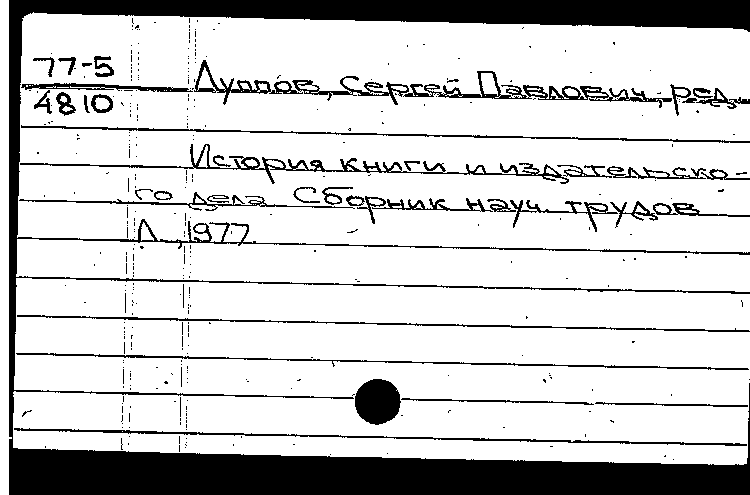 77-5
4810
Луппов, Сергей Павлович, ред.
История книги и издательско-
го дела Сборник науч. трудов
Л., 1977.